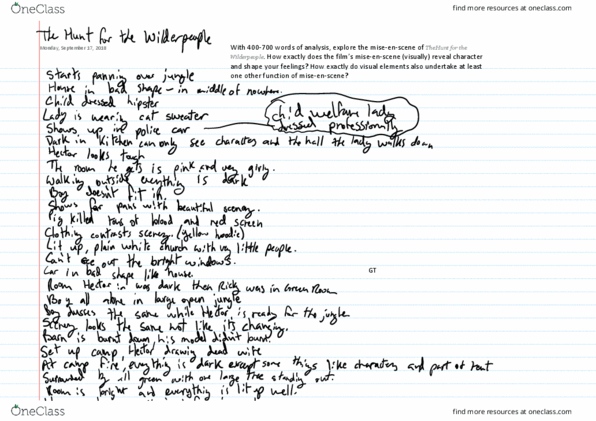 OneClass
find more resources at oneclass.com
The Hunt for the Wilderpeople
Monday, September 17, 2018
With 400-700 words of analysis, explore the mise-en-scene of The Hunt for the
Wilderpeople. How exactly does the film's mise-en-scene (visually) reveal character
and shape your feelings? How exactly do visual elements also undertake at least
one other function of mise-en-scene?
Starts panning over jungle
House in bad shape - in middle of nowhere.
Child dressed hipster
Lady is wearing cat sweater
child welfare lady
dressed professionally
Shows up in police car
Dark in kitchen can only see characters and the hall the lady walks down
Hector looks tough
The room he gets is pink and very girly.
Walking outside everything is dark
Boy doesn't fit in.
Shows far pans with beautiful scenery.
Pig killed tons of blood and red screen
Clothing contrasts scenery. (yellow hoodie)
Lit up, plain white church with very little people.
Can't see out the bright windows.
Car in bad shape like house.
GT
Room Hector in was dark then Ricky was in Green Room
Boy all alone in large open jungle
Boy dresses the same while Hector is ready for the jungle.
Scenery looks the same not like its changing.
Barn is burnt down, his model didn't burn.
Set up camp, Hector drawing dead wife
At camp fire, everything is dark except some things like characters and part of tent
Surrounded by all green with one large tree standing out.
Room is bright and everything is lit up well.
OneClass
find more resources at oneclass.com